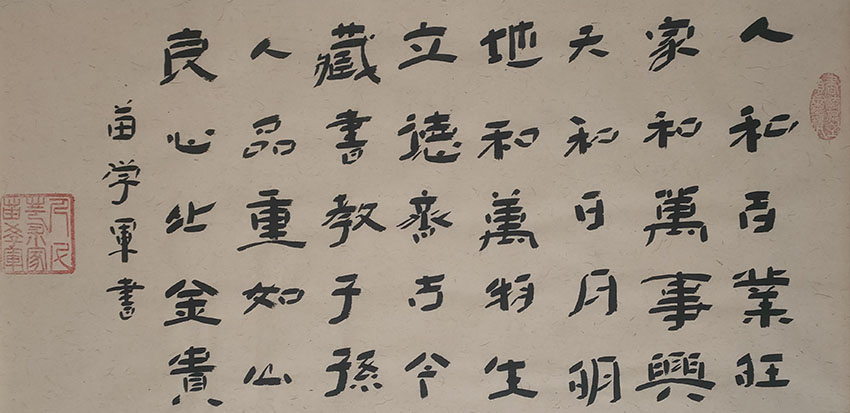 人和百業旺
家和萬事興
天和日月明
地和萬物生
立德齊古今
藏書教子孫
人品重如山
良心比金貴
苗学軍書